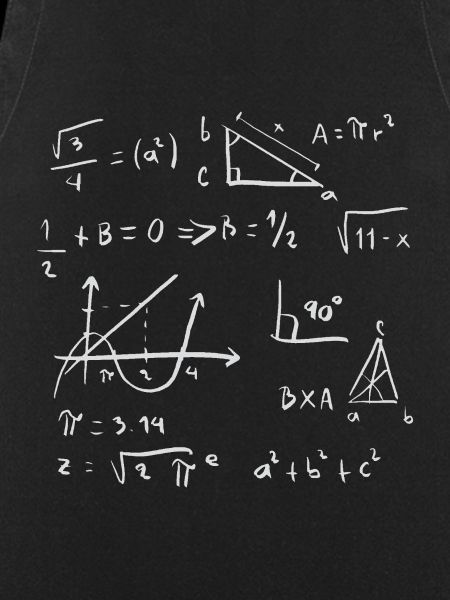 √3/4 = (a²)
b
x
A = πr²
c
a
1/2 + B = 0 => B = 1/2
√11 - x
90°
π 2 4
c
B X A
a b
π = 3.14
z = √2 π e
a² + b² + c²